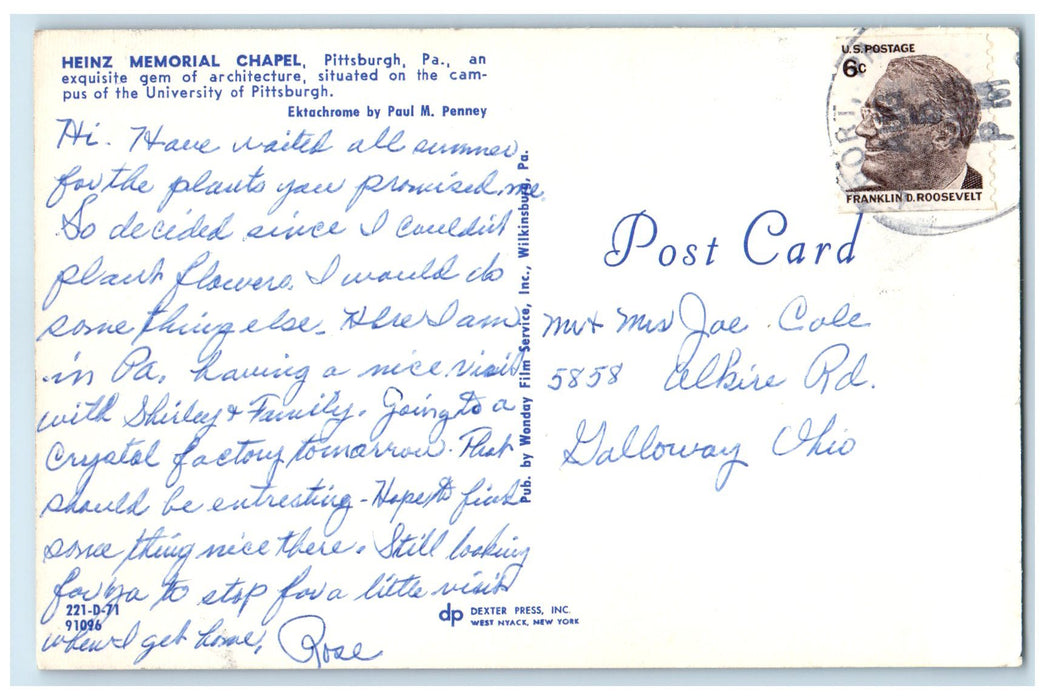 HEINZ MEMORIAL CHAPEL, Pittsburgh, Pa., an
exquisite gem of architecture, situated on the cam-
pus of the University of Pittsburgh.
Ektachrome by Paul M. Penney
Hi. Have waited all summer
for the plants you promised me.
So decided since I couldn't
plant flowers. I would do
some thing else. Here I am
in Pa. having a nice visit
with Shirley & Family. Going to a
Crystal factory tomorrow. That
should be entresting - Hope to find
some thing nice there. Still looking
for ya to stop for a little visit
when I get home.
Rose
221-D-71
91096
Pub. by Wonday Film Service, Inc., Wilkinsburg, Pa.
dp DEXTER PRESS, INC.
WEST NYACK, NEW YORK
U.S. POSTAGE
6c
FRANKLIN D. ROOSEVELT
FORT
AUG
PM
Post Card
Mr & Mrs Joe Cole
5858 Alkire Rd.
Galloway Ohio